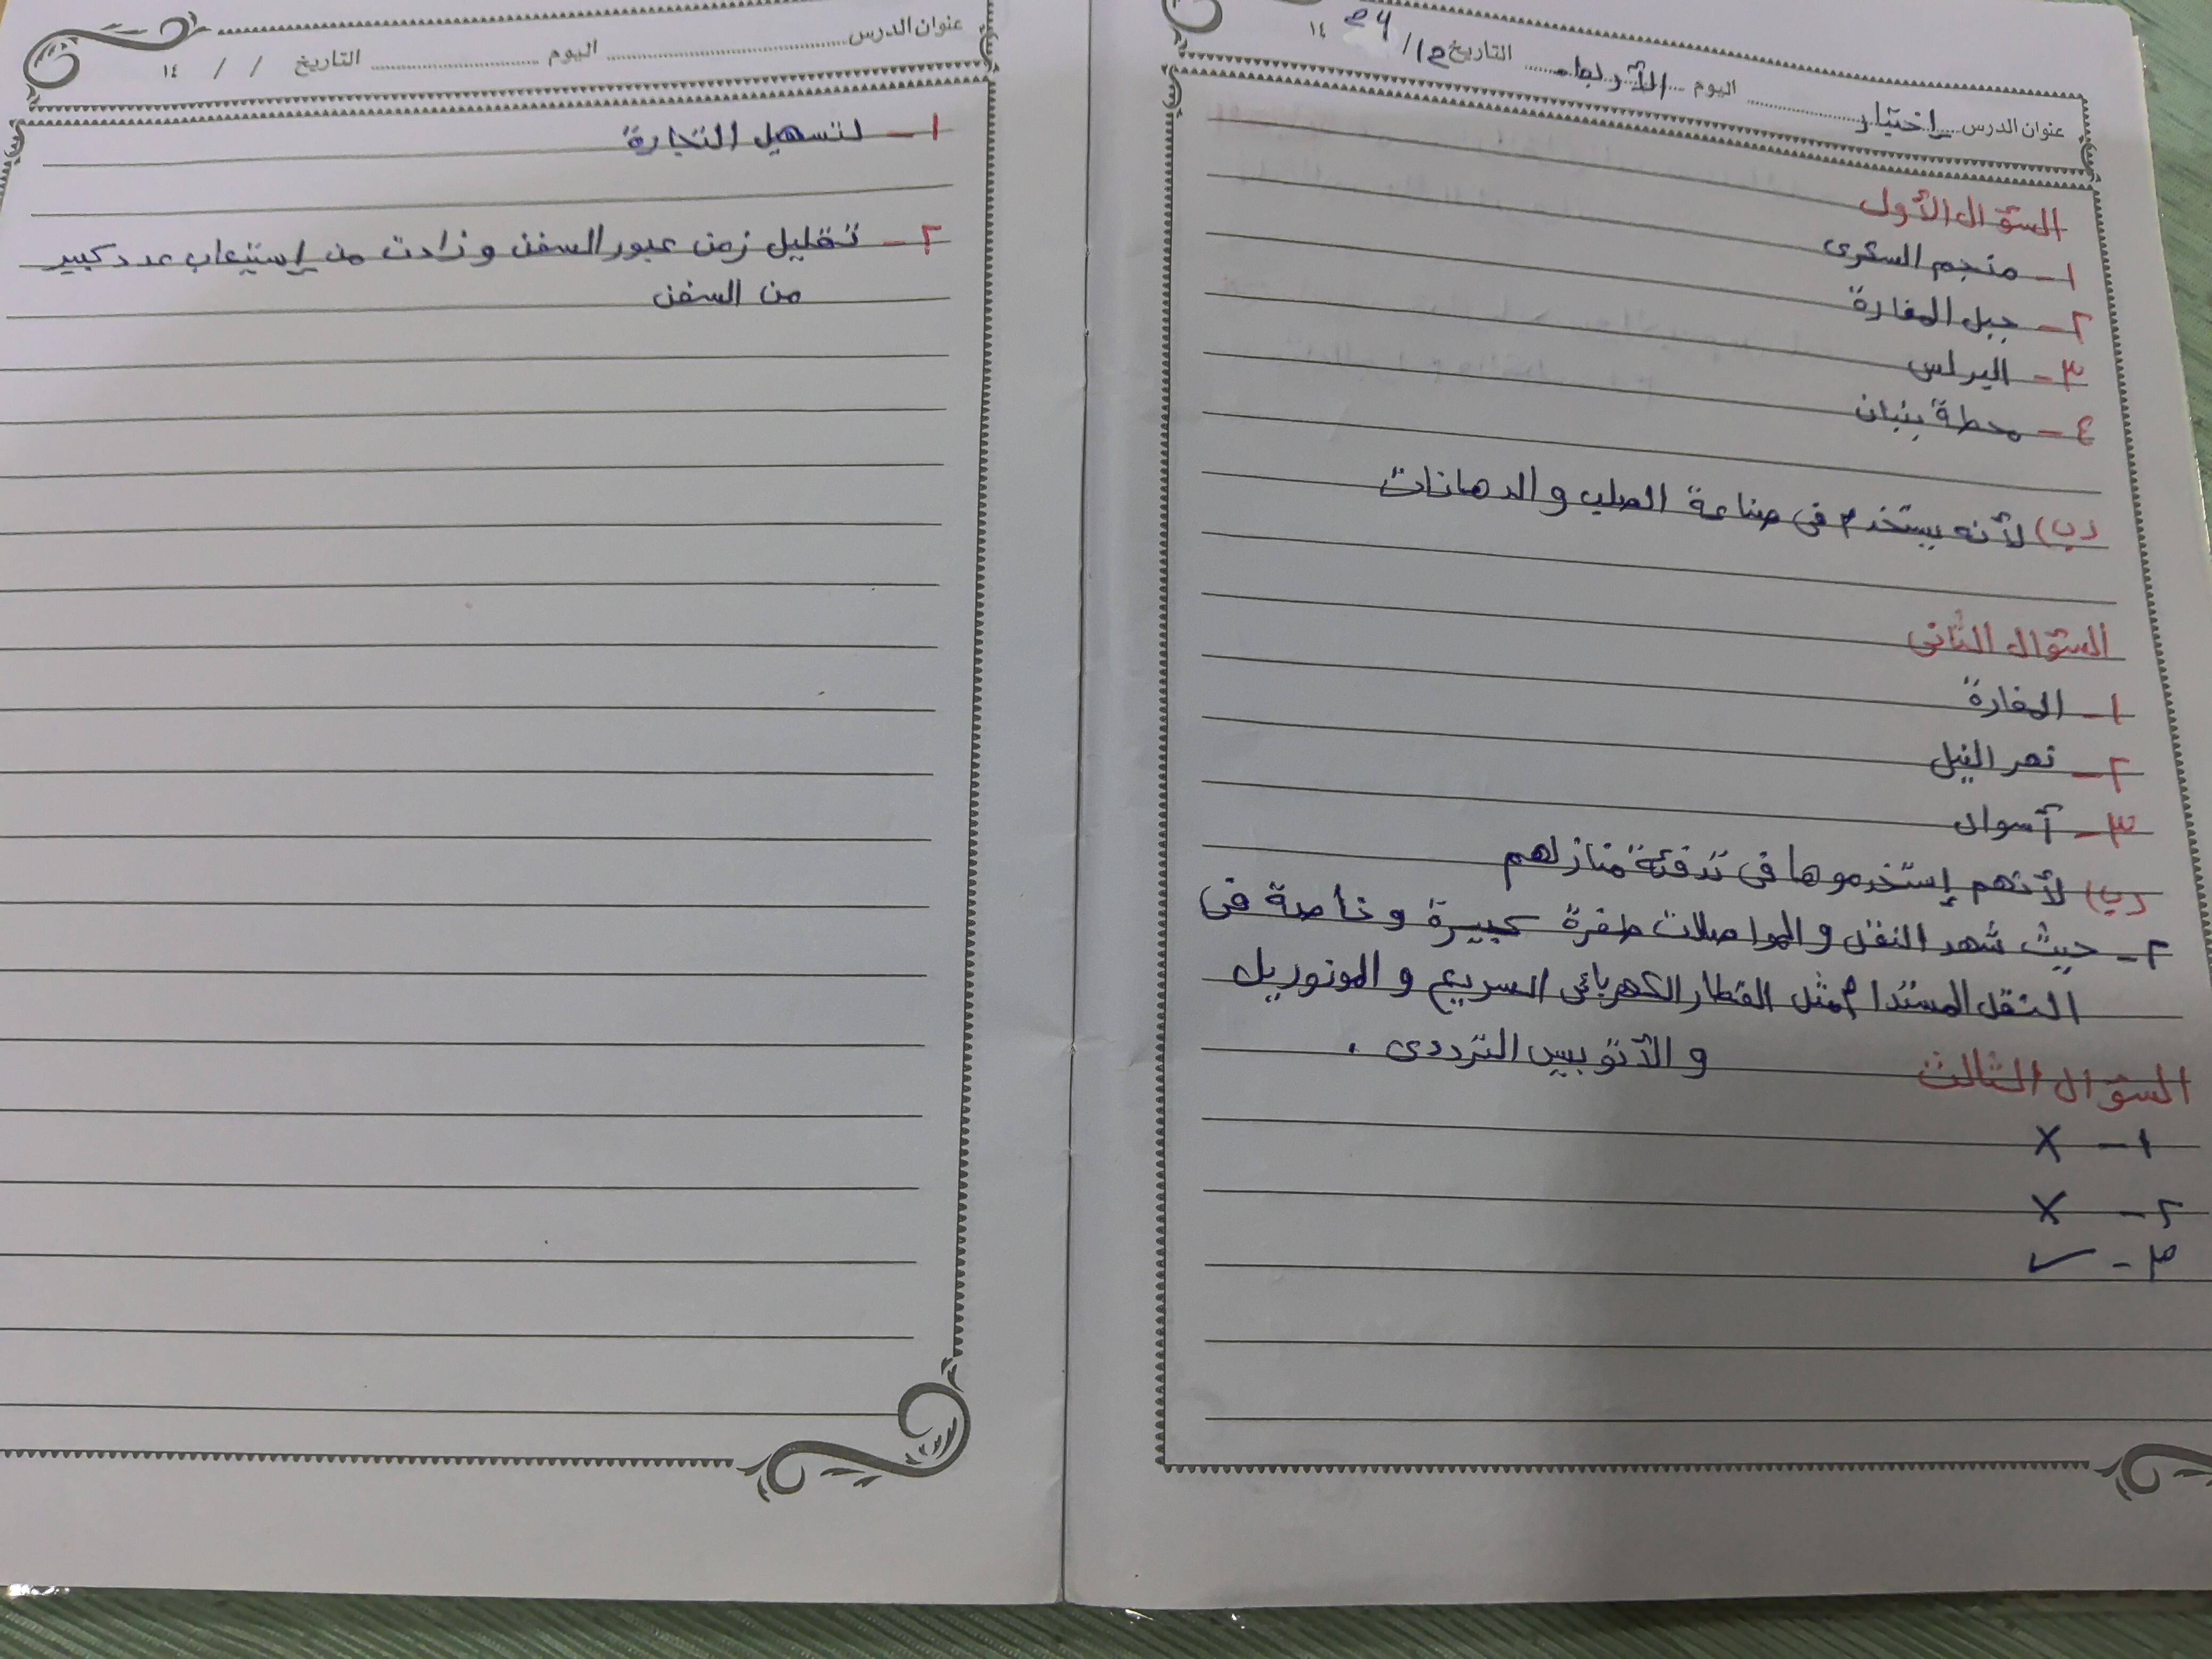 عنوان الدرس إختبار اليوم الأربعاء التاريخ 24/12 ١٤
السؤال الأول
١- منجم السكرى
٢- جبل المغارة
٣- البرلس
٤- محطة بنبان
(ب) لأنه يستخدم فى صناعة الصلب والدهانات
السؤال الثانى
١- المغارة
٢- نهر النيل
٣- أسوان
(ب) لأنهم إستخدموها فى تدفئة منازلهم
٢- حيث شهد النقل والمواصلات طفرة كبيرة وخاصة فى
النقل المستدام مثل القطار الكهربائى السريع والمونوريل
والأتوبيس الترددى .
السؤال الثالث
١- X
٢- X
٣- ✓
عنوان الدرس اليوم التاريخ / / ١٤
١- لتسهيل التجارة
٢- تقليل زمن عبور السفن وزادت من إستيعاب عدد كبير
من السفن